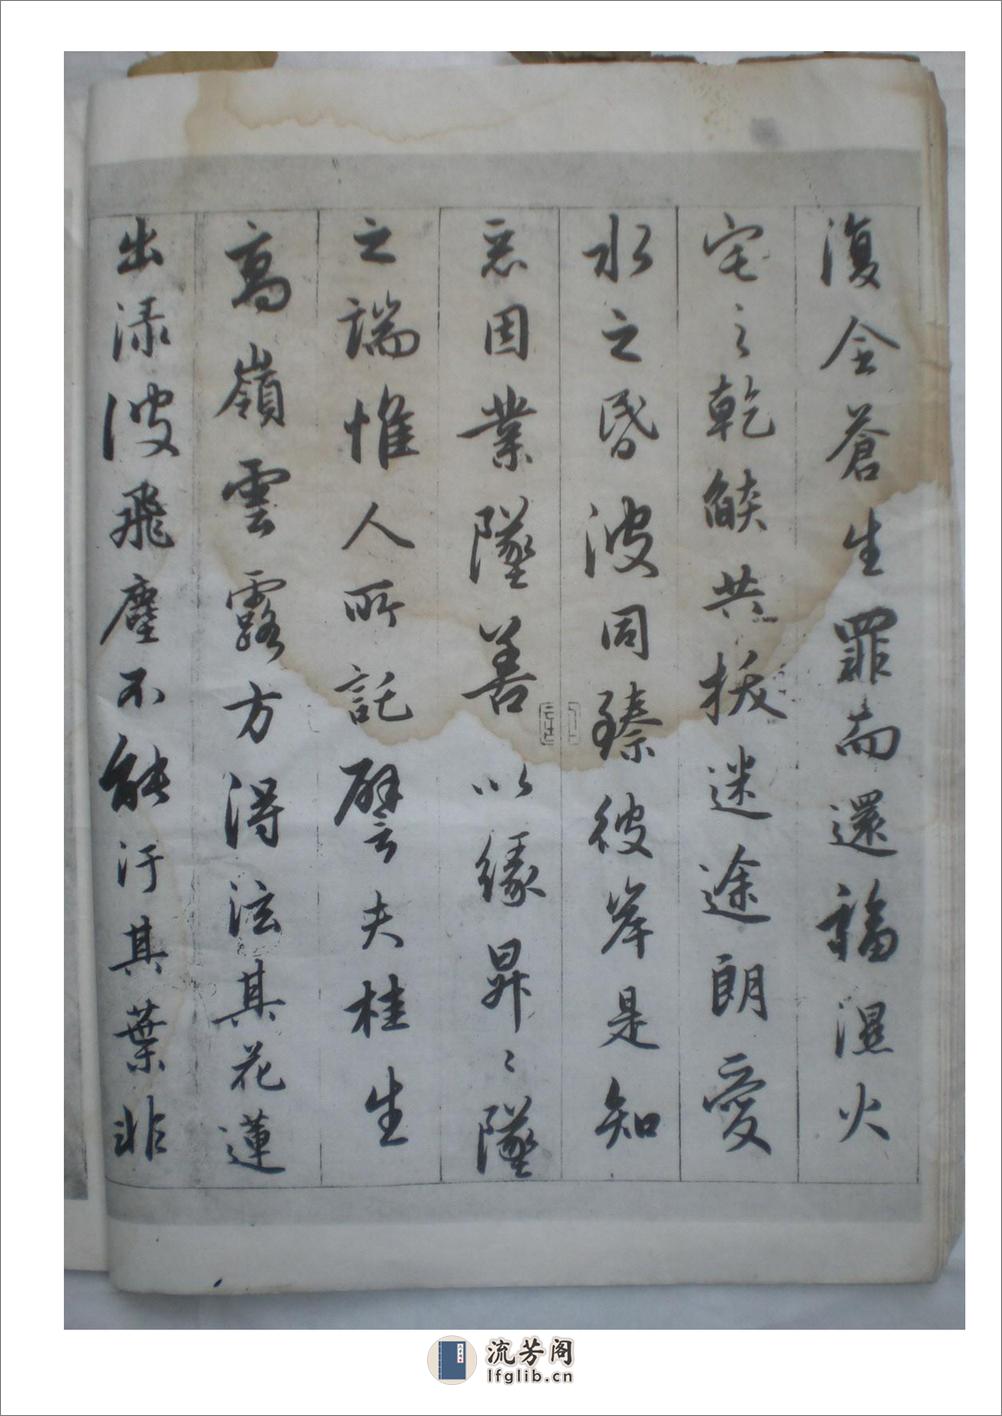 復全蒼生罪而還福濕火
宅之乾燄共拔迷途朗愛
水之昏波同臻彼岸是知
惡因業墜善以緣昇〻墜
之端惟人所託譬夫桂生
高嶺雲露方得泫其花蓮
出淥波飛塵不能汙其葉非
流芳阁
lfglib.cn